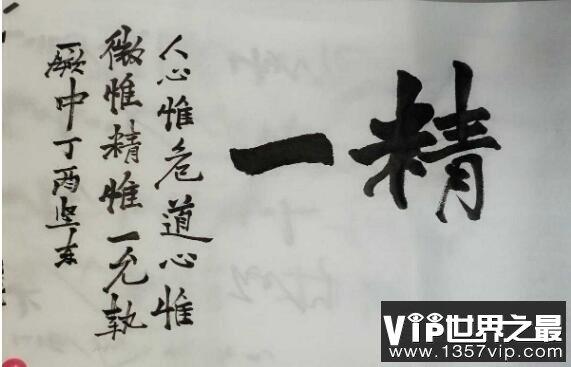 精一
人心惟危道心惟
微惟精惟一允執
厥中丁酉坚
VIP世界之最
www.1357vip.com